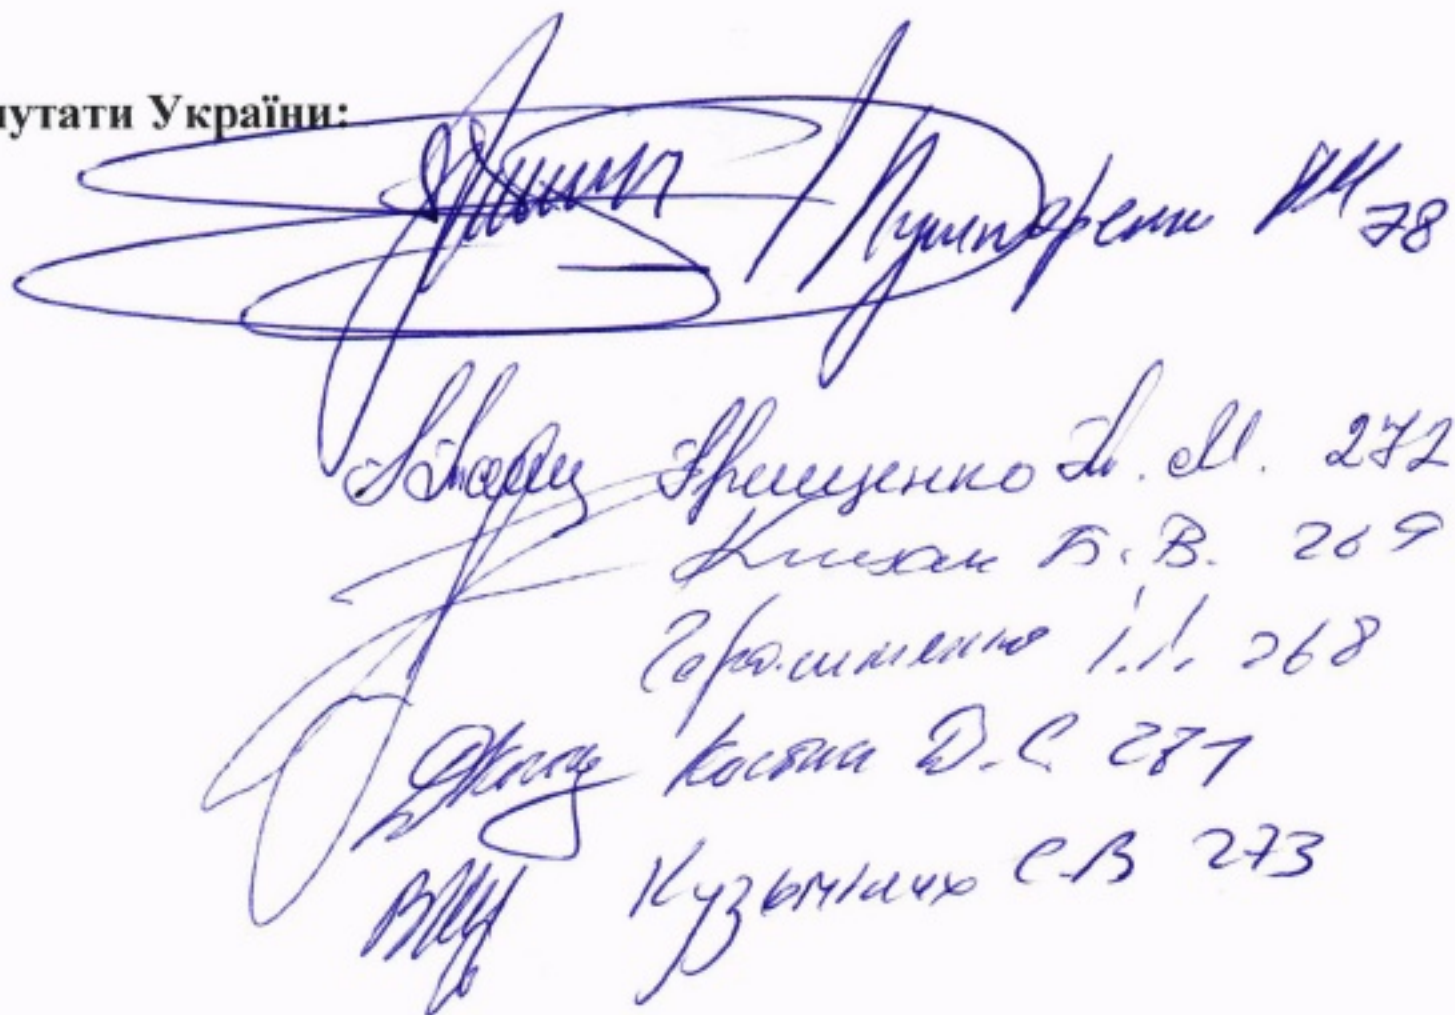 путати України:
Пушкаренко АМ 78
Грищенко Т. М. 272
Кицак Б. В. 269
Герасименко І.Л. 268
Костюк Д.С 271
Кузьміних С.В 273